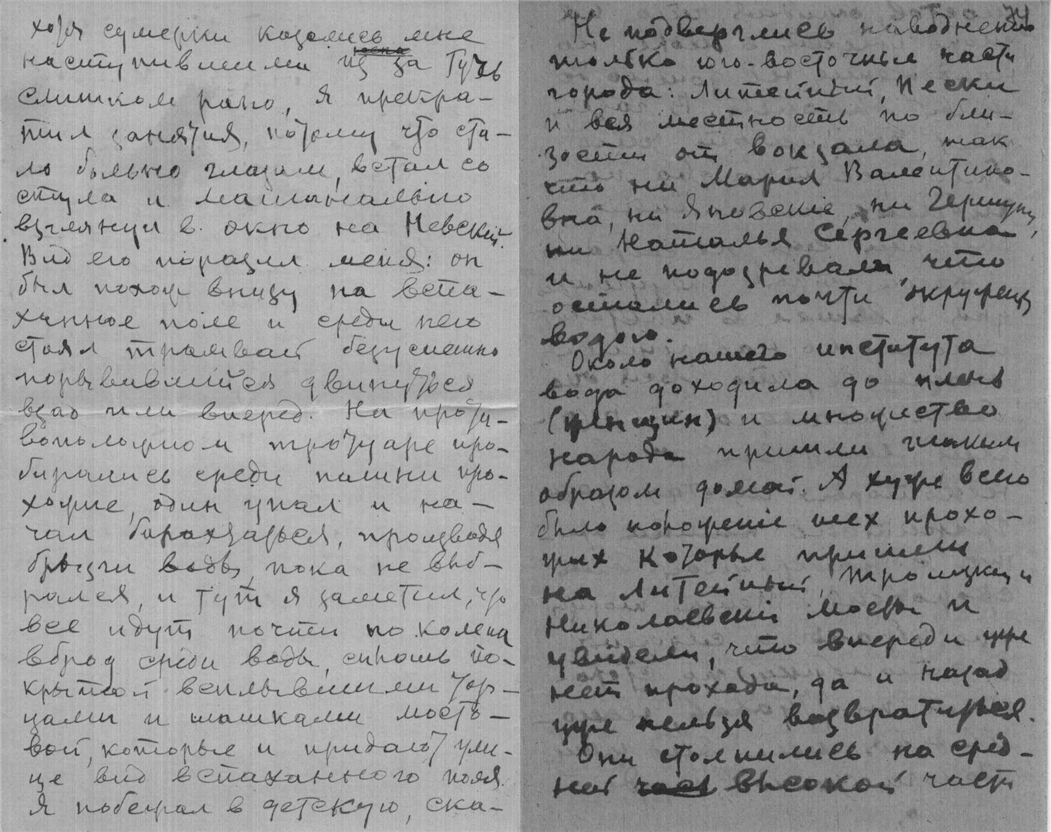 хотя сумерки казались мне
наступившими из за туч
слишком рано, я прекра-
тил занятия, потому что ста-
ло больно глазам, встал со
стула и машинально
взглянул в окно на Невскій.
Вид его поразил меня: он
был похож внизу на вспа-
ханное поле и среди него
стоял трамвай безуспешно
порывавшийся двинуться
взад или вперед. На проти-
воположном тротуаре про-
бирались среди пашни про-
хожие, один упал и на-
чал барахтаться, производя
брызги воды, пока не выб-
рался, и тут я заметил, что
все идут почти по колена
вброд среди воды, сплошь по-
крытой всплывшими тор-
цами и шашками мосто-
вой, которые и придают ули-
це вид вспаханного поля.
Я побежал в детскую, ска-
Не подверглись наводнению
только юго-восточные части
города: Литейный, Пески
и вся местность по бли-
зости от вокзала, так
что ни Мария Валентино-
вна, ни Яновскіе, ни
ни Наталья Сергеевна
и не подозревали, что
остались почти окружены
водою.
Около нашего института
вода доходила до плеч
(женщин) и множество
народа пришли таким
образом домой. А хуже всего
было положеніе тех прохо-
жих которые пришли
на Литейный, Троицкий и
Николаевскій мосты и
увидели, что впереди уже
нет прохода, да и назад
уже нельзя возвратиться.
Они столпились на сред-
ней высокой части